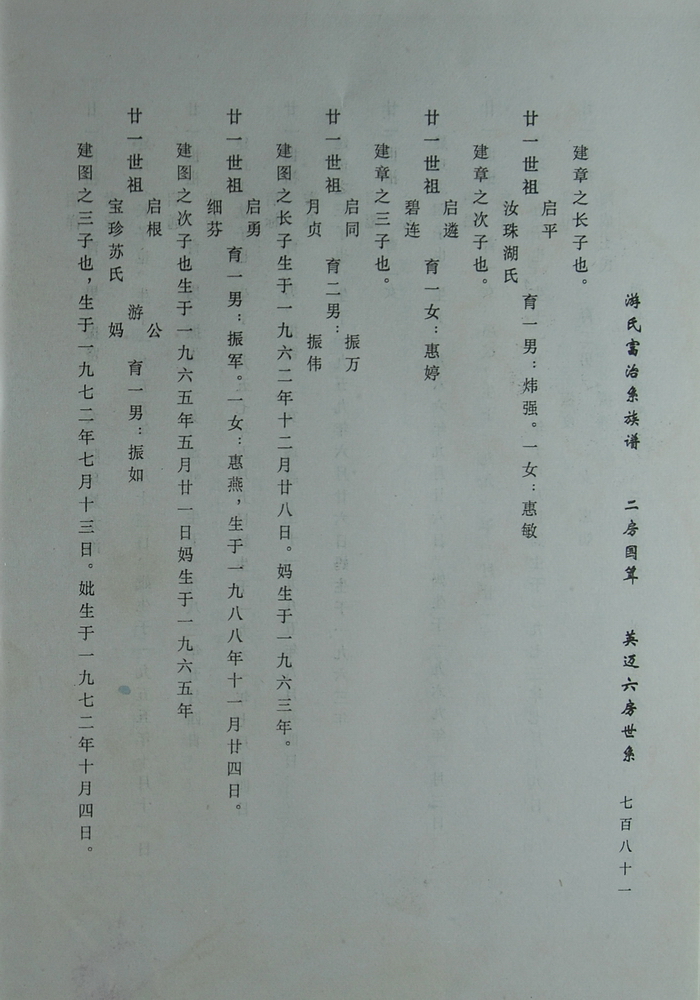 游氏富治系族谱 二房国算 英迈六房世系 七百八十一
建章之长子也。
廿一世祖 启平 汝珠湖氏 育一男：炜强。一女：惠敏
建章之次子也。
廿一世祖 启遴 碧连 育一女：惠婷
建章之三子也。
廿一世祖 启同 月贞 育二男： 振万 振伟
建图之长子生于一九六二年十二月廿八日。妈生于一九六三年。
廿一世祖 启勇 细芬 育一男：振军。一女：惠燕，生于一九八八年十一月廿四日。
建图之次子也生于一九六五年五月廿一日妈生于一九六五年
廿一世祖 启根 宝珍苏氏 游 公 妈 育一男：振如
建图之三子也，生于一九七二年七月十三日。妣生于一九七二年十月四日。